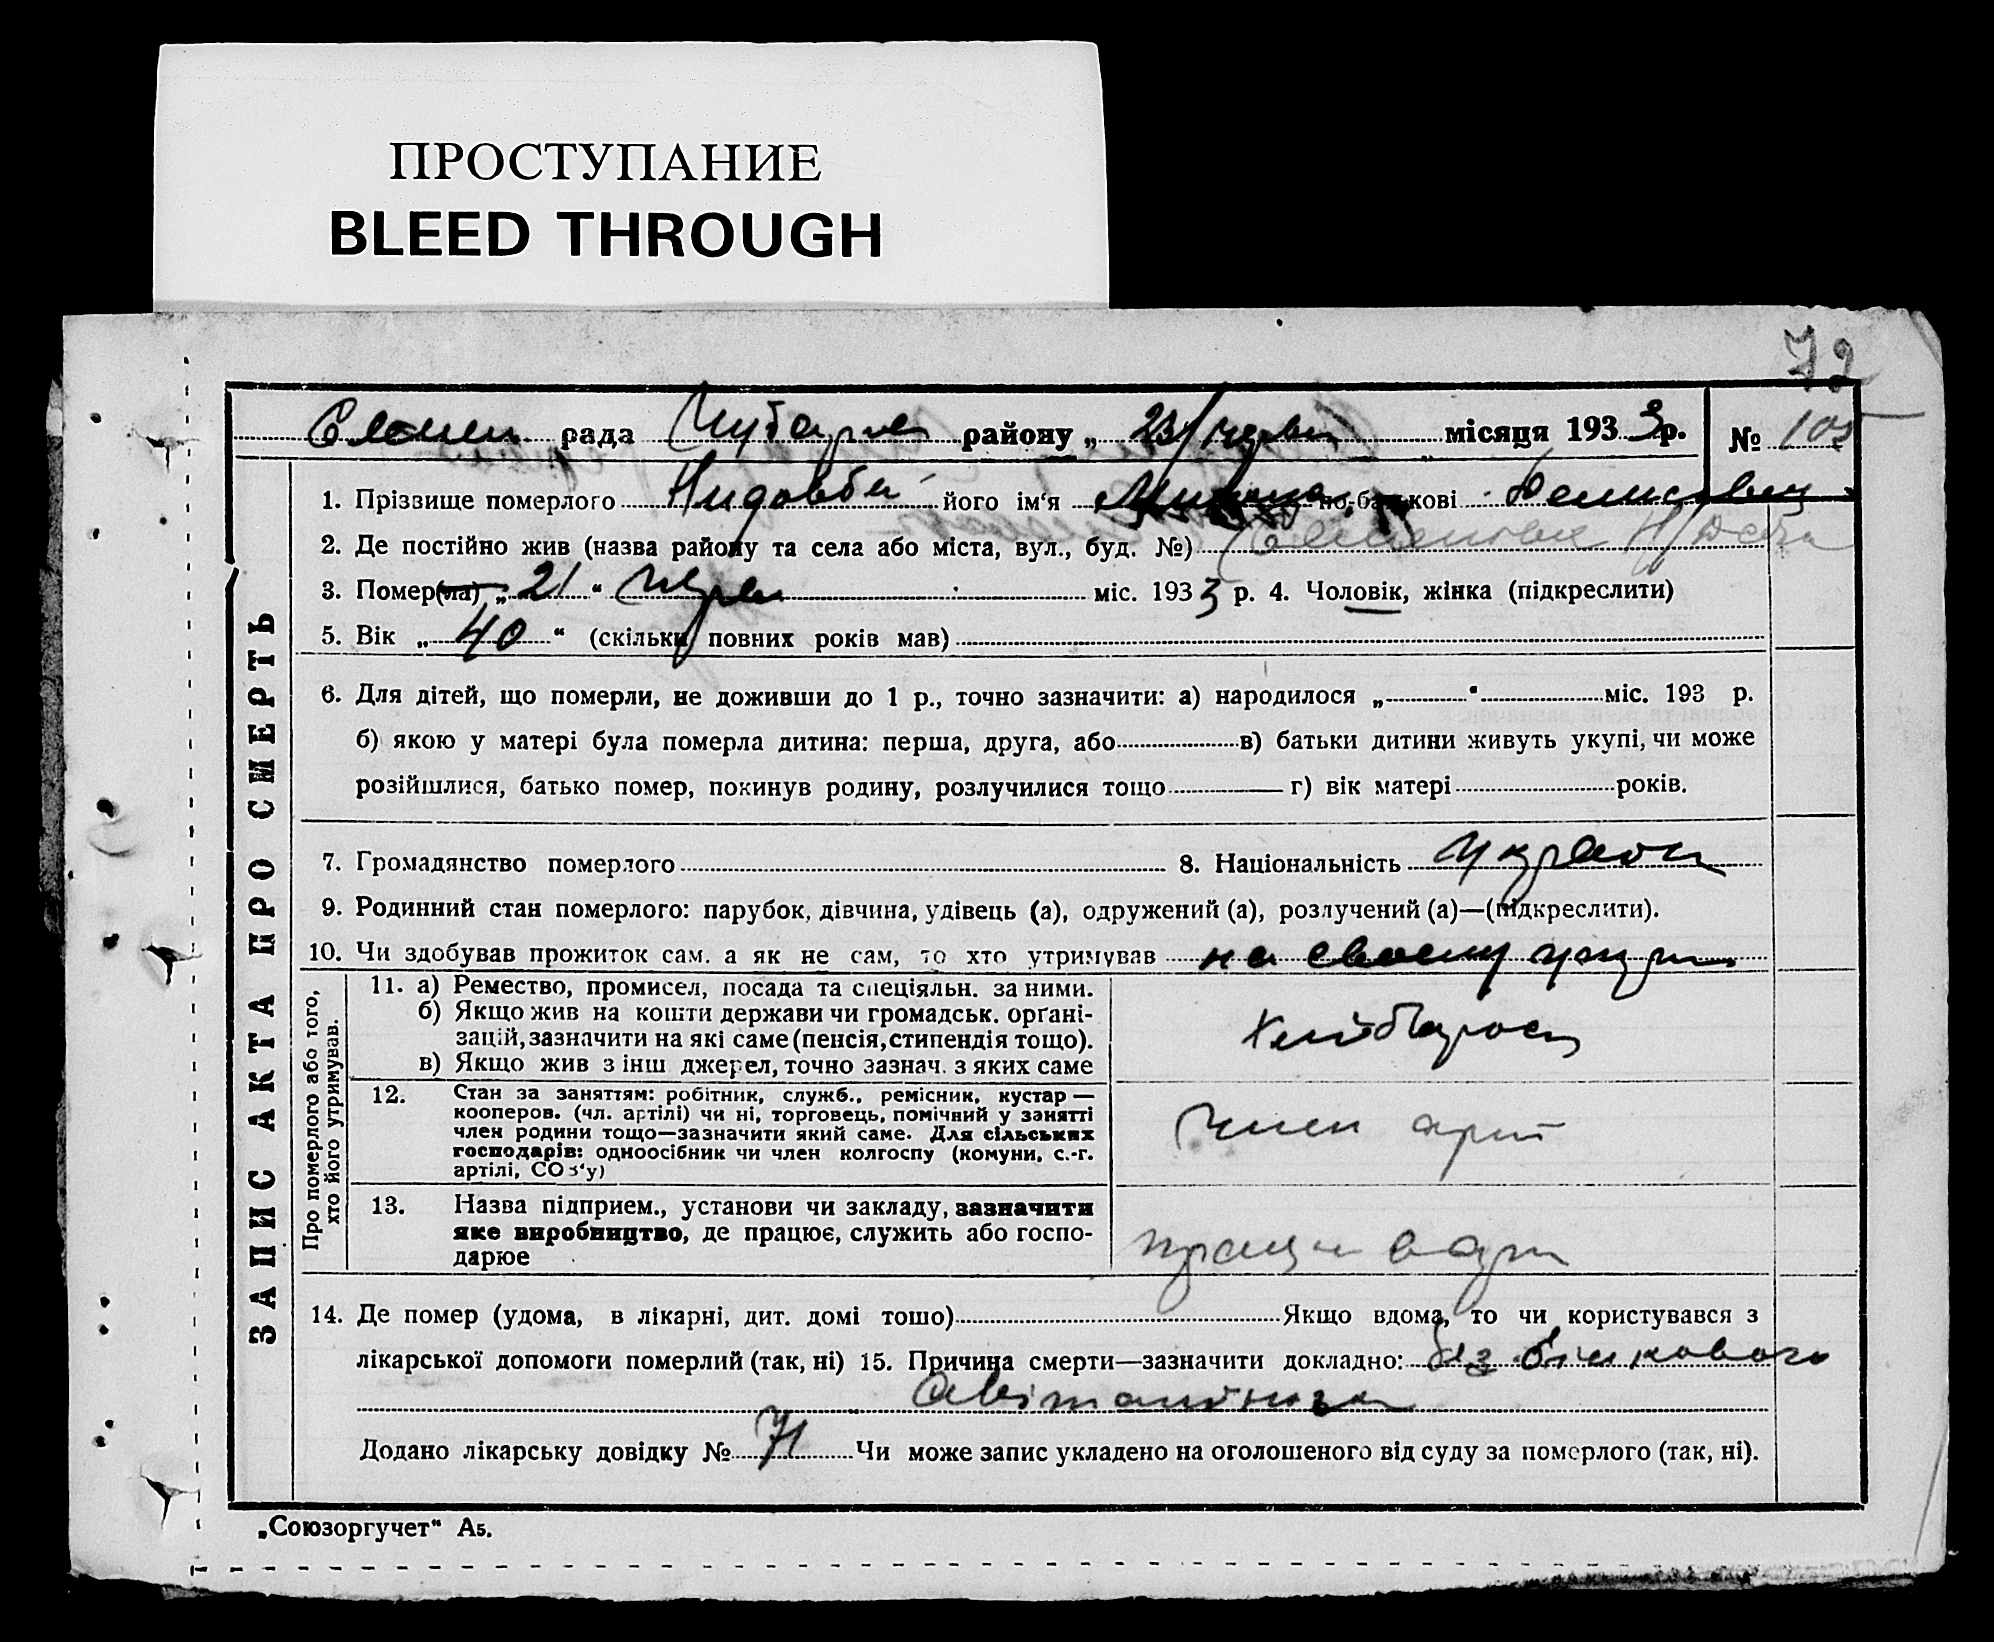 ПРОСТУПАНИЕ
BLEED THROUGH
72
рада району „ 23/черв місяця 1933р. № 105
1. Прізвище померлого його ім‘я по-батькові Денисович
2. Де постійно жив (назва району та села або міста, вул., буд. №)
3. Помер(ла) „ 21 “ черв міс. 1933 р. 4. Чоловік, жінка (підкреслити)
5. Вік „ 40 “ (скільки повних років мав)
6. Для дітей, що померли, не доживши до 1 р., точно зазначити: а) народилося „ “ міс. 193 р.
б) якою у матері була померла дитина: перша, друга, або в) батьки дитини живуть укупі, чи може
розійшлися, батько помер, покинув родину, розлучилися тощо г) вік матері років.
7. Громадянство померлого 8. Національність україн
9. Родинний стан померлого: парубок, дівчина, удівець (а), одружений (а), розлучений (а)—(підкреслити).
10. Чи здобував прожиток сам, а як не сам, то хто утримував на своєму утри
ЗАПИС АКТА ПРО СМЕРТЬ
Про померлого або того,
хто його утримував.
11. а) Ремество, промисел, посада та спеціяльн. за ними.
б) Якщо жив на кошти держави чи громадськ. орґані-
зацій, зазначити на які саме (пенсія, стипендія тощо).
в) Якщо жив з інш джерел, точно зазнач. з яких саме
хлібороб
12. Стан за заняттям: робітник, служб., ремісник, кустар —
кооперов. (чл. артілі) чи ні, торговець, помічний у занятті
член родини тощо—зазначити який саме. Для сільських
господарів: одноосібник чи член колгоспу (комуни, с.-г.
артілі, СОЗ‘у)
член арт
13. Назва підприєм., установи чи закладу, зазначити
яке виробництво, де працює, служить або госпо-
дарюе
працув в арт
14. Де помер (удома, в лікарні, дит. домі тощо) Якщо вдома, то чи користувався з
лікарської допомоги померлий (так, ні) 15. Причина смерти—зазначити докладно: без білкового
авітаміноза
Додано лікарську довідку № 71 Чи може запис укладено на оголошеного від суду за померлого (так, ні).
„Союзоргучет“ А5.